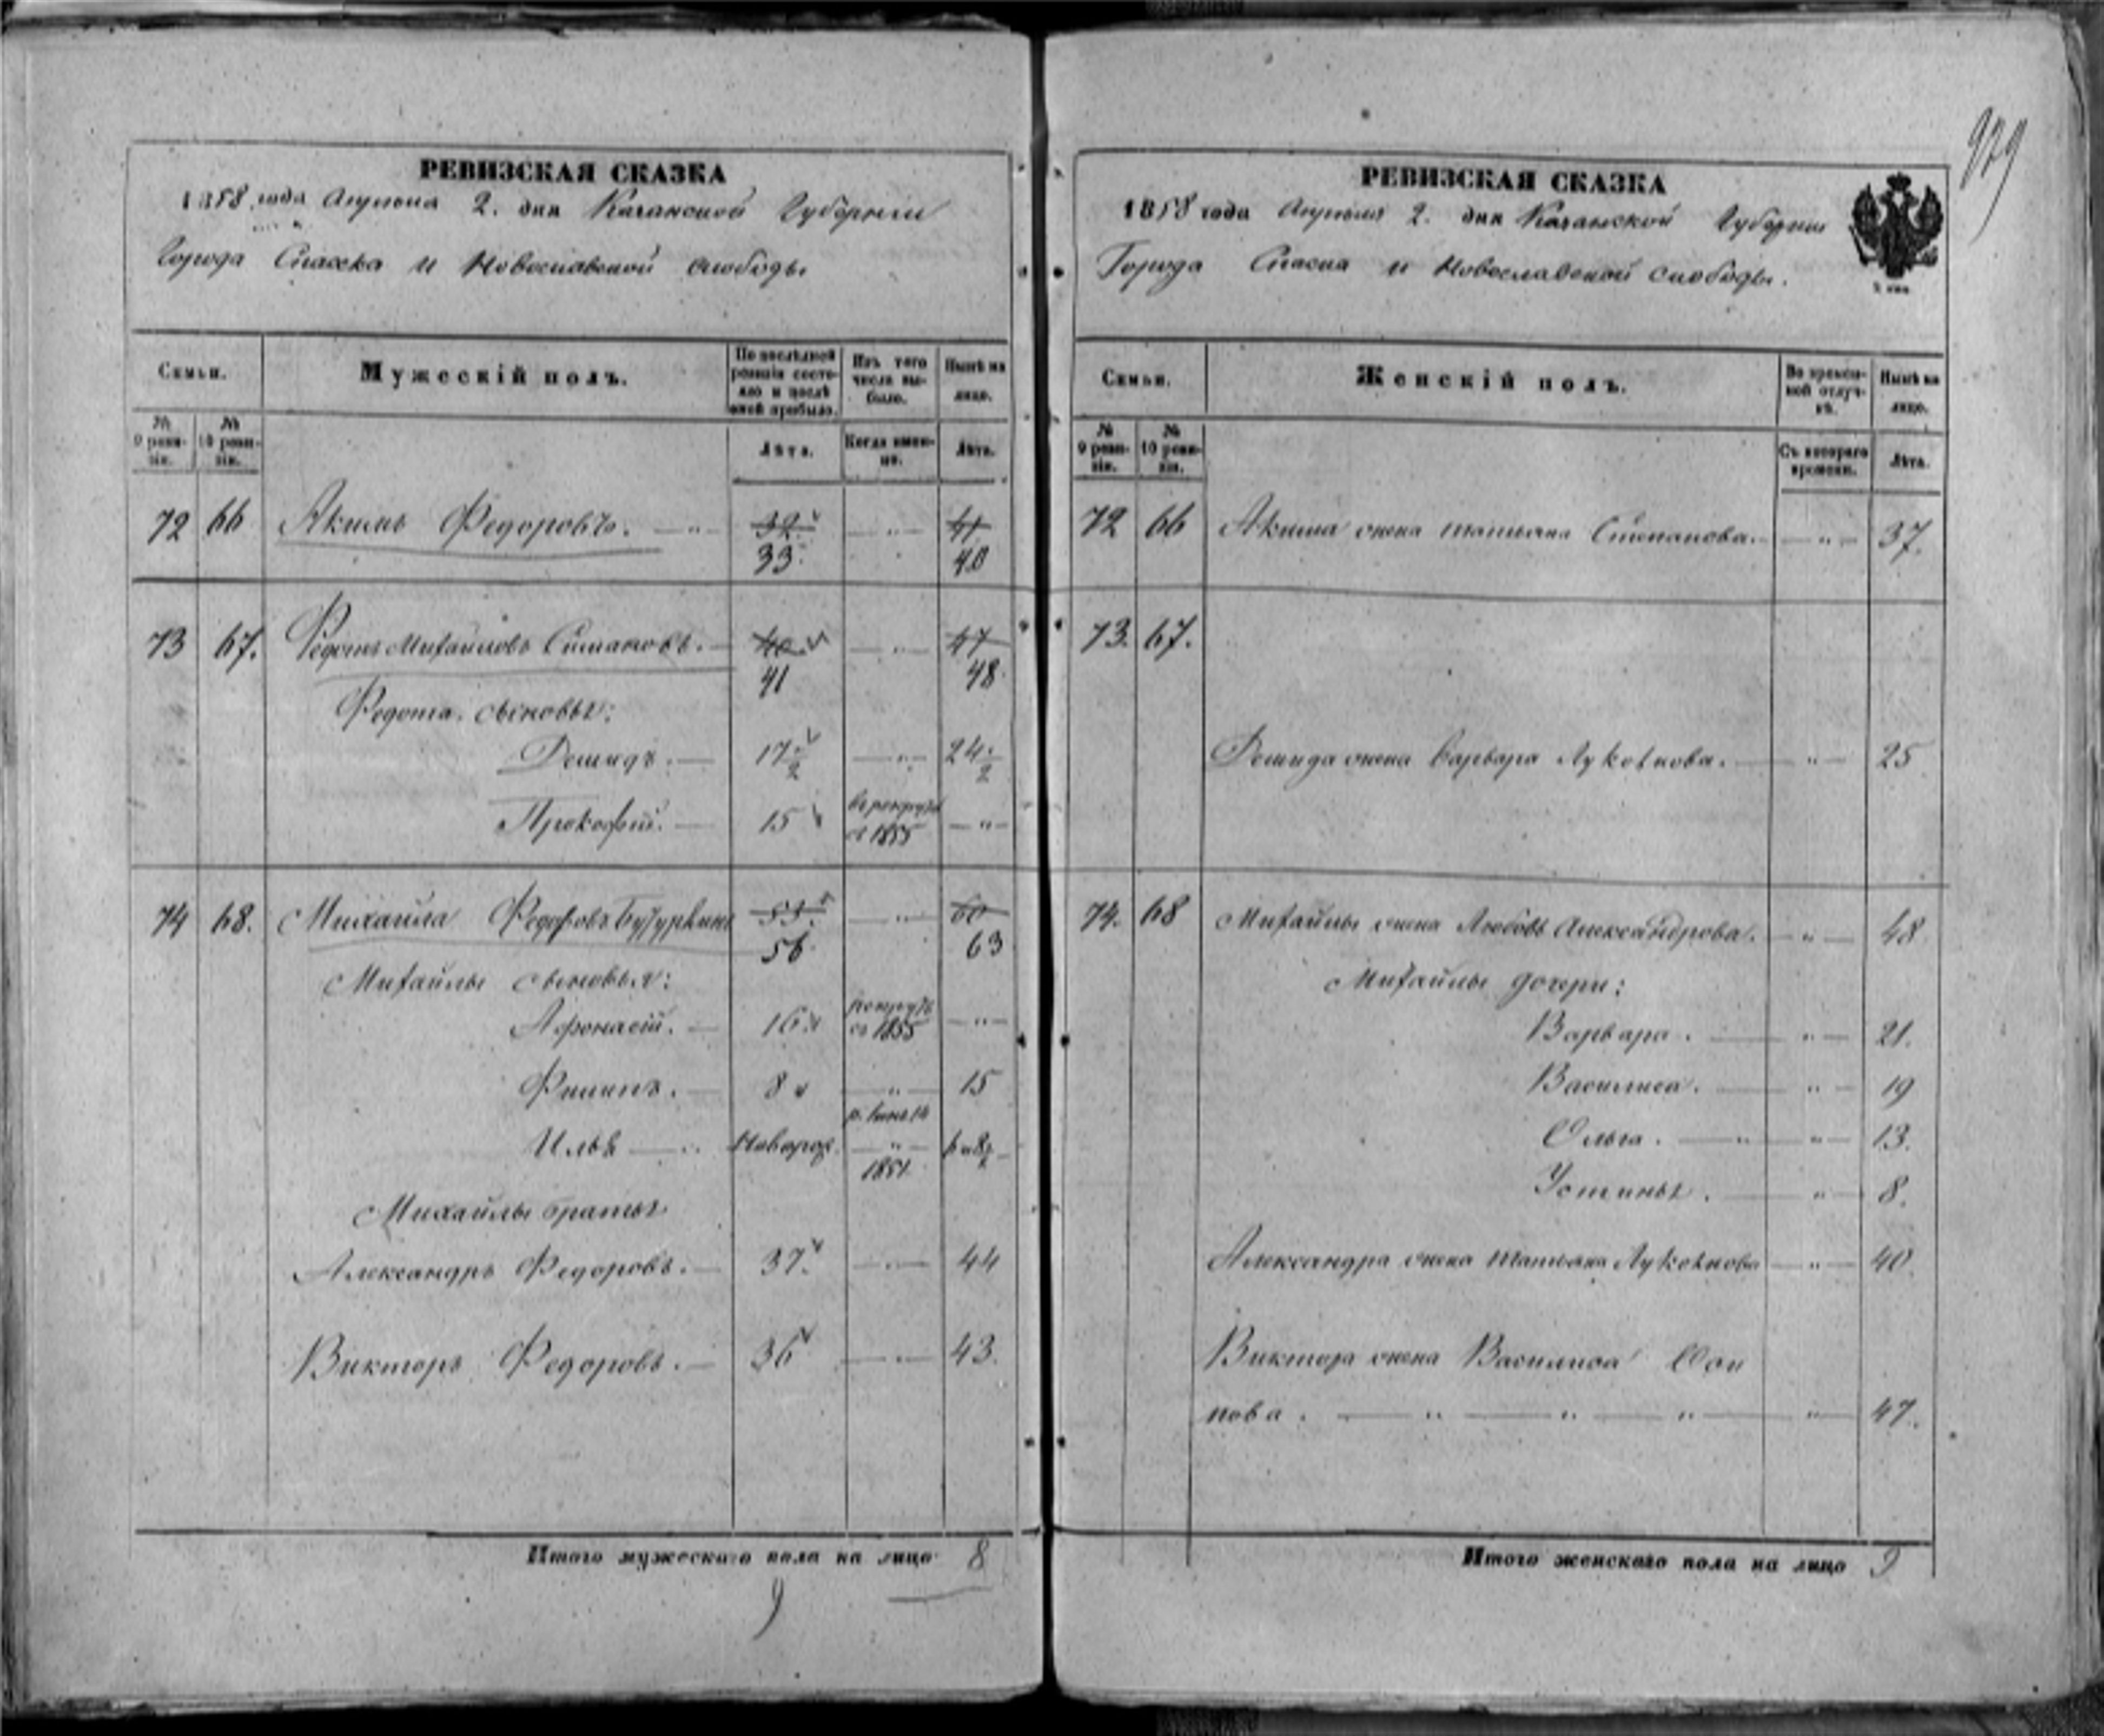 979
РЕВИЗСКАЯ СКАЗКА
1858 года Апреля 2. дня Казанской Губернии
Города Спасска и Новоспавской слободы
Семьи.
Мужескій полъ.
По послѣдней ревизіи состояло и послѣ оной прибыло.
Изъ того числа выбыло.
Нынѣ на лицо.
№ 9 ревизіи.
№ 10 ревизіи.
Лѣта.
Когда именно.
Лѣта.
72 66 Акимъ Федоровъ. — " 32. — " — 41
33. 40
73 67. Федотъ Михайловъ Симановъ. — 40. — " — 47
41 48
Федота сыновья:
Демидъ. — 17 1/2 — " — 24 1/2
Прокофій. — 15 в рекруты с 1855 — " —
74 68. Михаила Федоровъ 53. — " — 60
56. 63
Михайлы сыновья:
Афонасій. — 16 рекруты с 1855 — " —
Филипъ. — 8 — " — 15
Илья — " Новорож. — " —
1851.
Михайлы братья
Александръ Федоровъ. — 37. — " — 44
Викторъ Федоровъ. — 36 — " — 43.
Итого мужескаго пола на лицо 8
9
РЕВИЗСКАЯ СКАЗКА
1858 года Апреля 2. дня Казанской Губернии
Города Спаска и Новоспавской слободы.
Семьи.
Женскій полъ.
Во временной отлучкѣ.
Нынѣ на лицо.
№ 9 ревизіи.
№ 10 ревизіи.
Съ котораго времени.
Лѣта.
72 66 Акима жена Татьяна Степанова. — " — 37.
73. 67.
Демида жена Варвара Лукоянова. — " — 25
74. 68 Михайлы жена Любовь Александрова. — " — 48
Михайлы дочери:
Варвара. — " — 21.
Василиса. — " — 19
Ольга. — " — " — 13.
Устинья. — " — 8.
Александра жена Татьяна Лукоянова — " — 40.
Виктора жена Василиса Оси
пова. — " — " — " — " — 47.
Итого женскаго пола на лицо 9